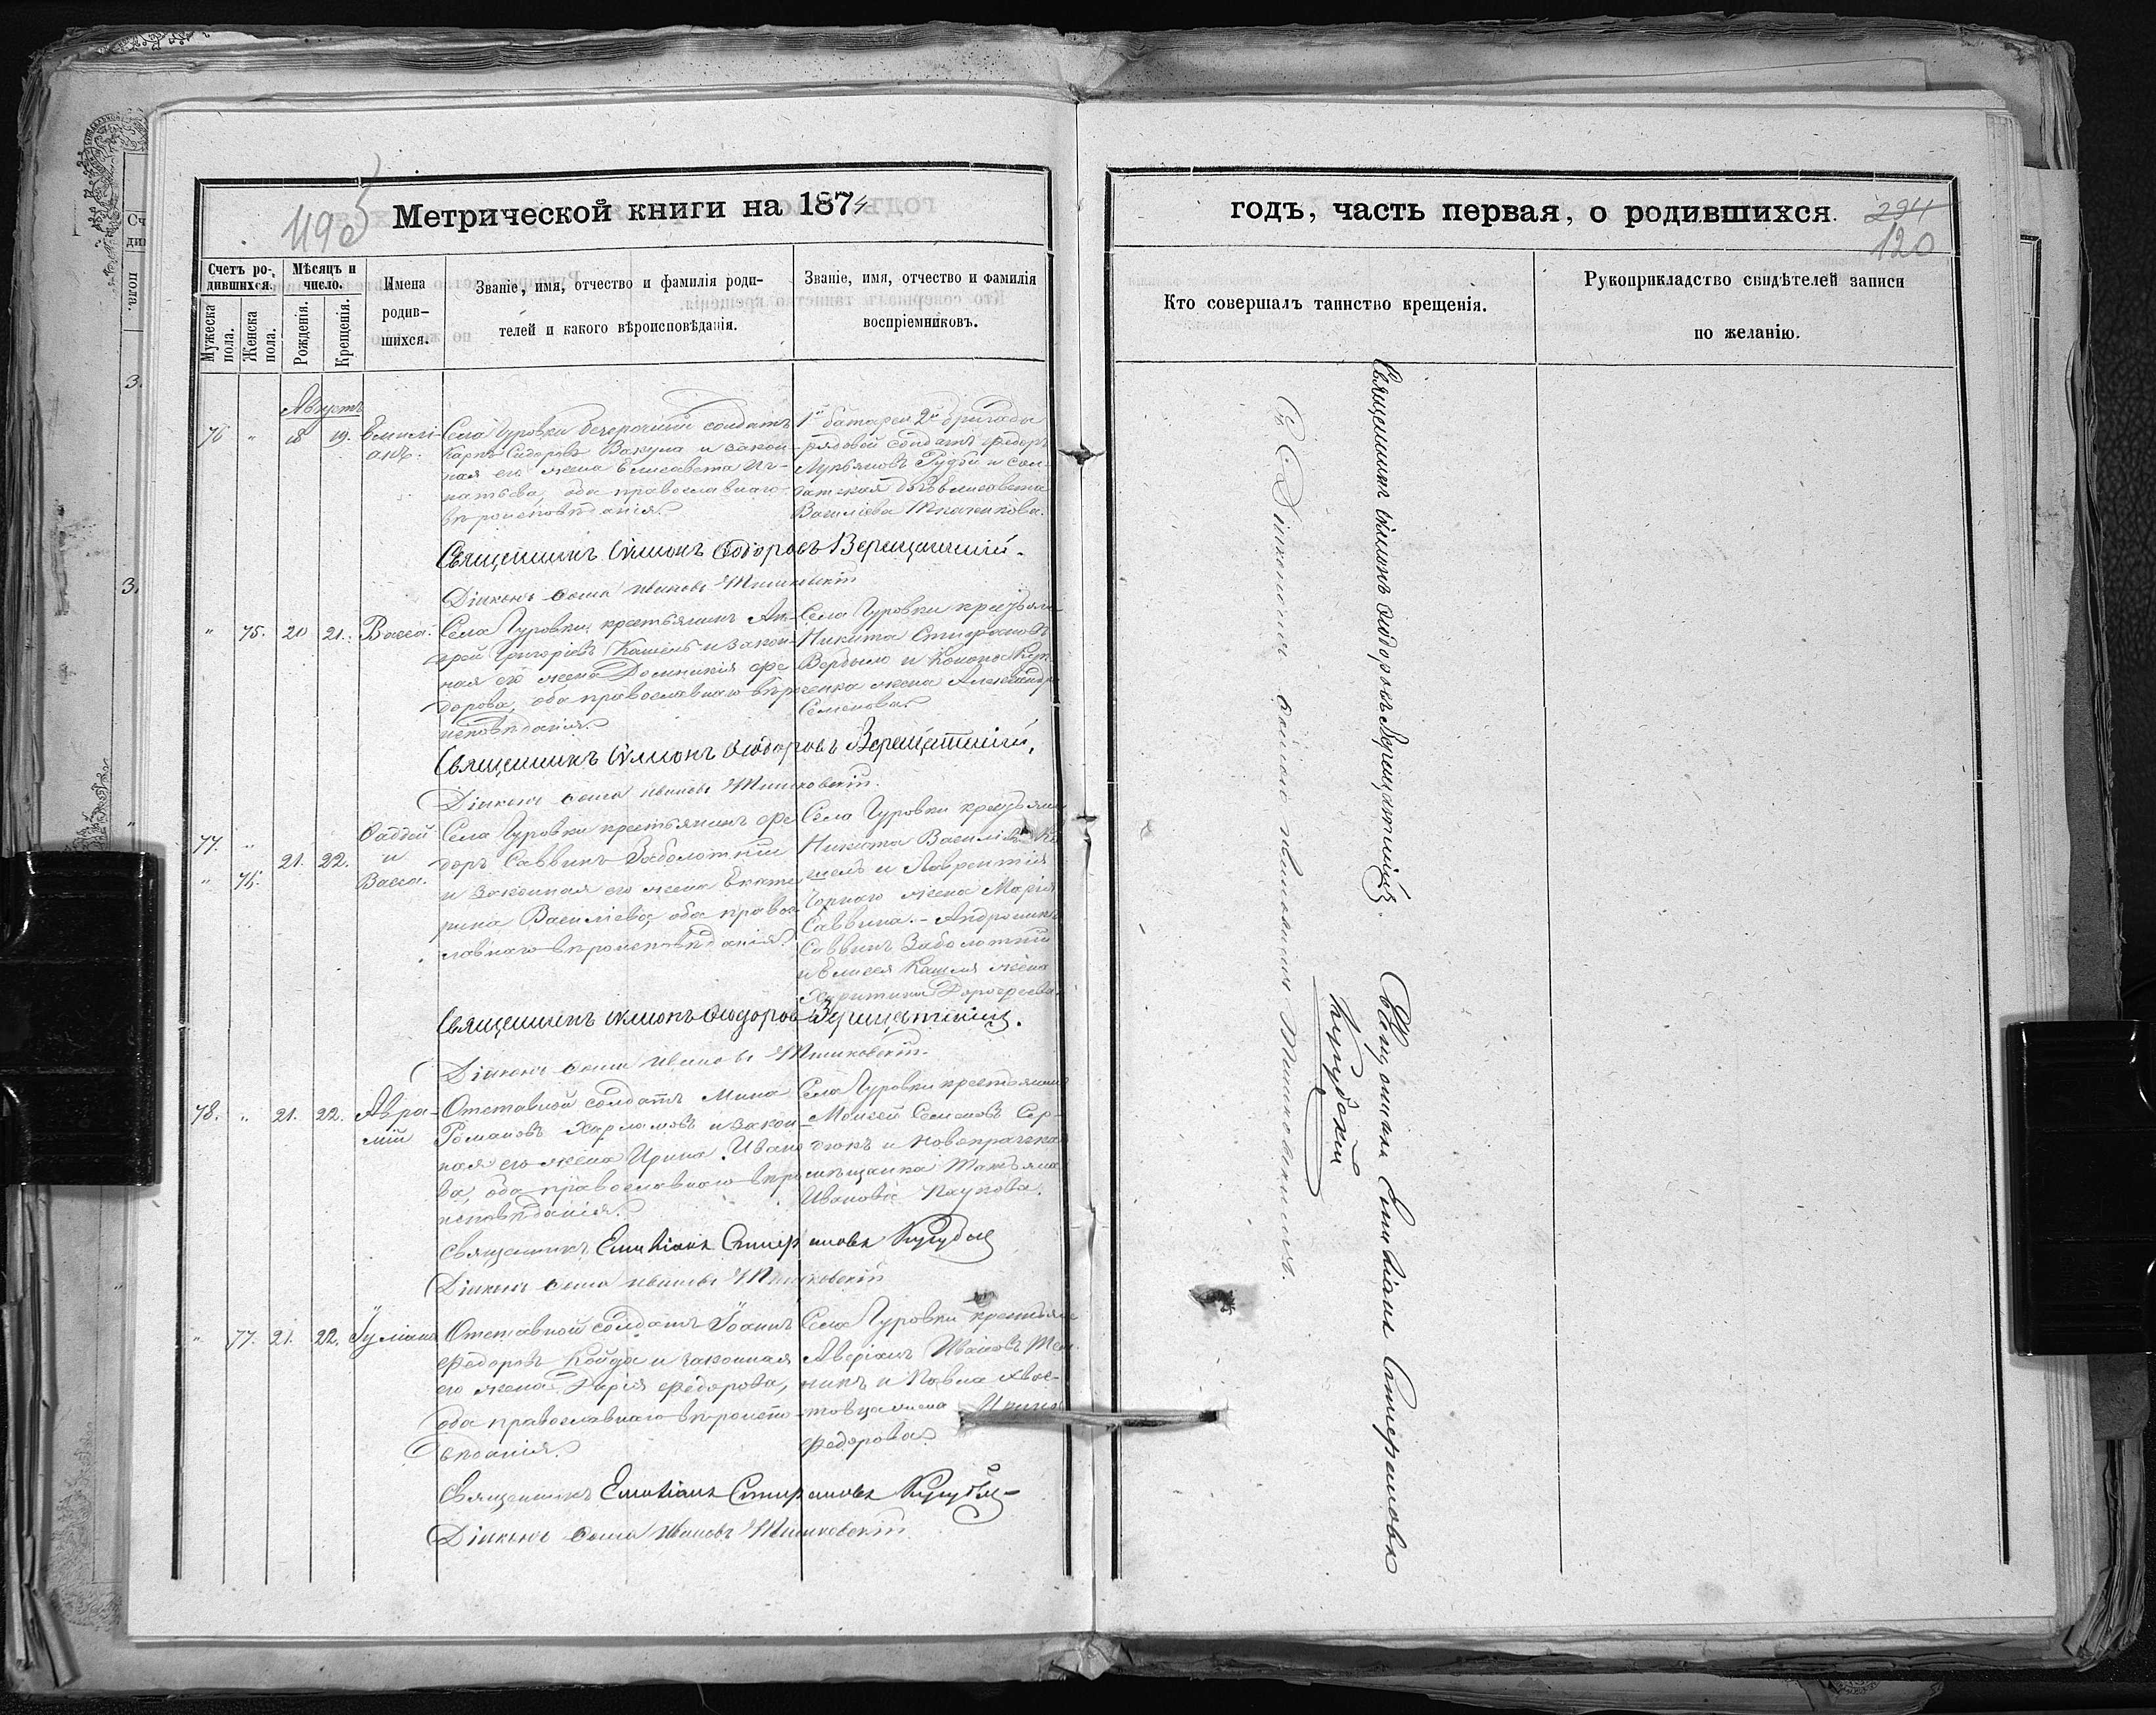 Метрической книги на 1874
Счетъ ро-
дившихся.
Мѣсяцъ и
число.
Мужеска
пола.
Женска
пола.
Рожденія.
Крещенія.
Имена
родив-
шихся.
Званіе, имя, отчество и фамилія роди-
телей и какого вѣроисповѣданія.
Званіе, имя, отчество и фамилія
воспріемниковъ.
Августъ
76 " 18 19. Емилі-
анъ.
Села Гуровки безсрочный солдатъ
Карпъ Сидоровъ Вакула и закон-
ная его жена Елисавета Иг-
натьева, оба православнаго
вѣроисповѣданія.
1й батареи 2й бригады
рядовой солдатъ Федоръ
Лукьяновъ Рудый и сол-
датская дочь Елисавета
Василіева Ткаченкова.
Священникъ Симонъ Ѳеодоровъ Верещатскій.
Діаконъ Ѳома Ивановъ Тишковскій
" 75. 20 21. Васса.
Села Гуровки крестьянинъ Ан-
дрей Григоріевъ Кашель и закон-
ная его жена Домникія Фе-
дорова, оба православнаго вѣро
исповѣданія.
Села Гуровки
Никита Стефановъ
и Конона
жена Александра
Семенова.
Священникъ Симонъ Ѳеодоровъ Верещатскій.
Діаконъ Ѳома Ивановъ Тишковскій.
77. "
" 76.
21. 22.
Ѳаддей
и
Васса.
Села Гуровки крестьянинъ Фе
доръ Саввинъ Заболотній
и законная его жена Екате
рина Василіева, оба правос
лавнаго вѣроисповѣданія.
Села Гуровки
Никита Василіевъ Ка
шель и Лаврентія
Чорнаго жена Марія
Саввина. - Андроникъ
Саввинъ Заболотній
и Елисея Кашеля жена
Харитина Дорофеева
Священникъ Симонъ Ѳеодоровъ Верещатскій.
Діаконъ Ѳома Ивановъ Тишковскій.
78. " 21. 22. Авра-
мій
Отставной солдатъ Мина
Романовъ Харламовъ и закон-
ная его жена Ирина Ивано
ва, оба православнаго вѣро
исповѣданія.
Села Гуровки крестьянинъ
Моисей Семеновъ Сер-
дюкъ и Новопражская
мѣщанка Татьяна
Иванова Паукова.
Священникъ Емиліанъ Стефановъ
Діаконъ Ѳома Ивановъ Тишковскій
" 77. 21. 22. Іуліана
Отставной солдатъ Іоаннъ
Федоровъ Койда и законная
его жена Дарія Федорова,
оба православнаго вѣроиспо
вѣданія.
Села Гуровки
Аверіанъ Ивановъ
и Павла Хвос-
товца жена
Федорова.
Священникъ Емиліанъ Стефановъ
Діаконъ Ѳома Ивановъ Тишковскій
годъ, часть первая, о родившихся.
294
120
Кто совершалъ таинство крещенія.
Рукоприкладство свидѣтелей записи
по желанію.
Священникъ Симонъ Ѳеодоровъ Верещатскій.
Священникъ Емиліанъ Стефановъ
Съ Діакономъ Ѳомою Тишковскимъ.